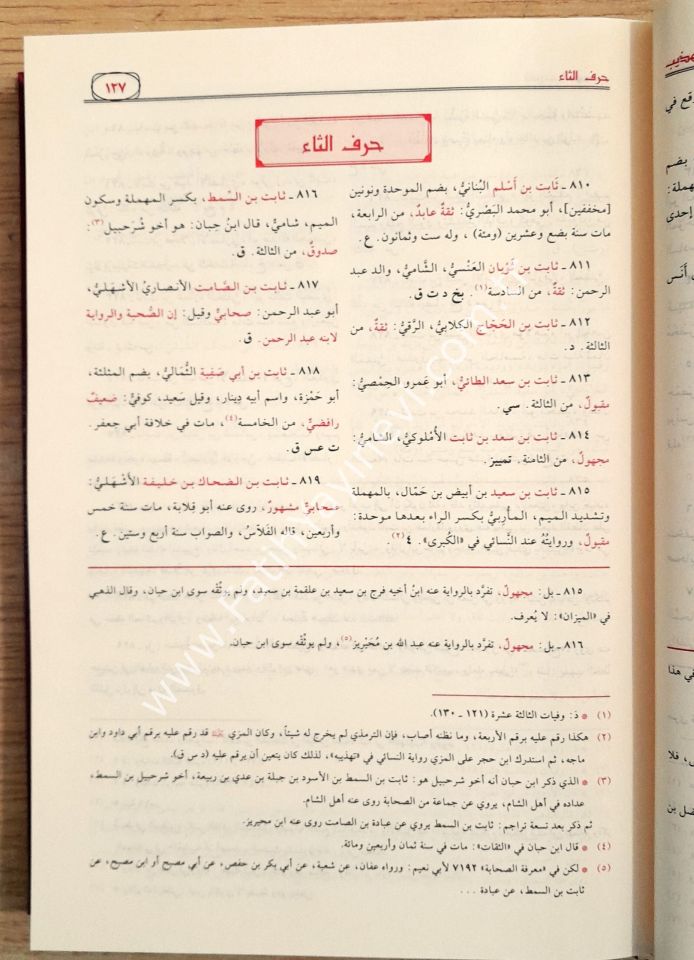 حرف الثاء
١٢٧
حرف الثاء
٨١٠ ـ ثابت بن أَسْلم البُنانيُّ، بضم الموحدة ونونين
[مخففين]، أبو محمد البَصْريُّ: ثقةٌ عابدٌ، من الرابعة،
مات سنة بضع وعشرين (ومئة) ، وله ست وثمانون. ع.
٨١١ ـ ثابت بن ثَوْبان العَنْسيُّ، الشَّاميُّ، والد عبد
الرحمن: ثقةٌ، من السادسة(١). بخ د ت ق.
٨١٢ ـ ثابت بن الحَجَّاج الكلابيُّ، الرَّقيُّ: ثقةٌ، من
الثالثة. د.
٨١٣ ـ ثابت بن سعد الطائيُّ، أبو عَمرو الحِمْصيُّ:
مقبولٌ، من الثالثة. سي.
٨١٤ ـ ثابت بن سعد بن ثابت الأُمْلوكيُّ، الشاميُّ:
مجهولٌ، من الثامنة. تمييز.
٨١٥ ـ ثابت بن سعيد بن أبيض بن حَمَال، بالمهملة
وتشديد الميم، المأْرِبيُّ بكسر الراء بعدها موحدة:
مقبولٌ، وروايتُه عند النَّسائي في «الكُبرى». ٤ (٢).
٨١٦ ـ ثابت بن السِّمط، بكسر المهملة وسكون
الميم، شاميٌّ، قال ابنُ حِبان: هو أخو شُرَحبيل(٣):
صدوقٌ، من الثالثة. ق.
٨١٧ ـ ثابت بن الصَّامت الأنصاريُّ الأشهَليُّ،
أبو عبد الرحمن: صحابيٌّ وقيل: إن الصُّحبة والرواية
لابنه عبد الرحمن. ق.
٨١٨ ـ ثابت بن أبي صَفِية الثُّماليُّ، بضم المثلثة،
أبو حَمْزة، واسم أبيه دِينار، وقيل سَعيد، كوفيٌّ: ضعيفٌ
رافضيٌّ، من الخامسة(٤)، مات في خلافة أبي جعفر.
ت عس ق.
٨١٩ ـ ثابت بن الضحاك بن خليفة الأَشْهَليُّ:
صحابيٌّ مشهورٌ، روى عنه أبو قِلابة، مات سنة خمس
وأربعين، قاله الفَلاّسُ، والصواب سنة أربع وستين. ع.
٨١٥ ـ بل: مجهولٌ، تفرَّد بالرواية عنه ابنُ أخيه فرج بن سعيد بن علقمة بن سعيد، ولم يوثِّقه سوى ابن حبان، وقال الذهبي
في «الميزان»: لا يُعرف.
٨١٦ ـ بل: مجهولٌ، تفرَّد بالرواية عنه عبد الله بن مُحَيْريز(٥)، ولم يوثقه سوى ابن حبان.
(١) * د: وفيات الثالثة عشرة (١٢١ ـ ١٣٠).
(٢) هكذا رقم عليه برقم الأربعة، وما نظنه أصاب، فإن الترمذي لم يخرج له شيئاً، وكان المزي قد رقم عليه برقم أبي داود وابن
ماجه، ثم استدرك ابن حجر على المزي رواية النسائي في «تهذيبه»، لذلك كان يتعين أن يرقم عليه (د س ق).
(٣) * الذي ذكر ابن حبان أنه أخو شرحبيل هو: ثابت بن السمط بن الأسود بن جبلة بن عدي بن ربيعة، أخو شرحبيل بن السمط،
عداده في أهل الشام، يروي عن جماعة من الصحابة روى عنه أهل الشام.
ثم ذكر بعد تسعة تراجم: ثابت بن السمط يروي عن عبادة بن الصامت روى عنه ابن محيريز.
(٤) * قال ابن حبان في «الثقات»: مات في سنة ثمان وأربعين ومائة.
(٥) * لكن في «معرفة الصحابة» ٧١٩٢ لأبي نعيم: ورواه عفان، عن شعبة، عن أبي بكر بن حفص، عن أبي مصبح أو ابن مصبح، عن
ثابت بن السمط، عن عبادة ...
www.fatihyayinevi.com.tr